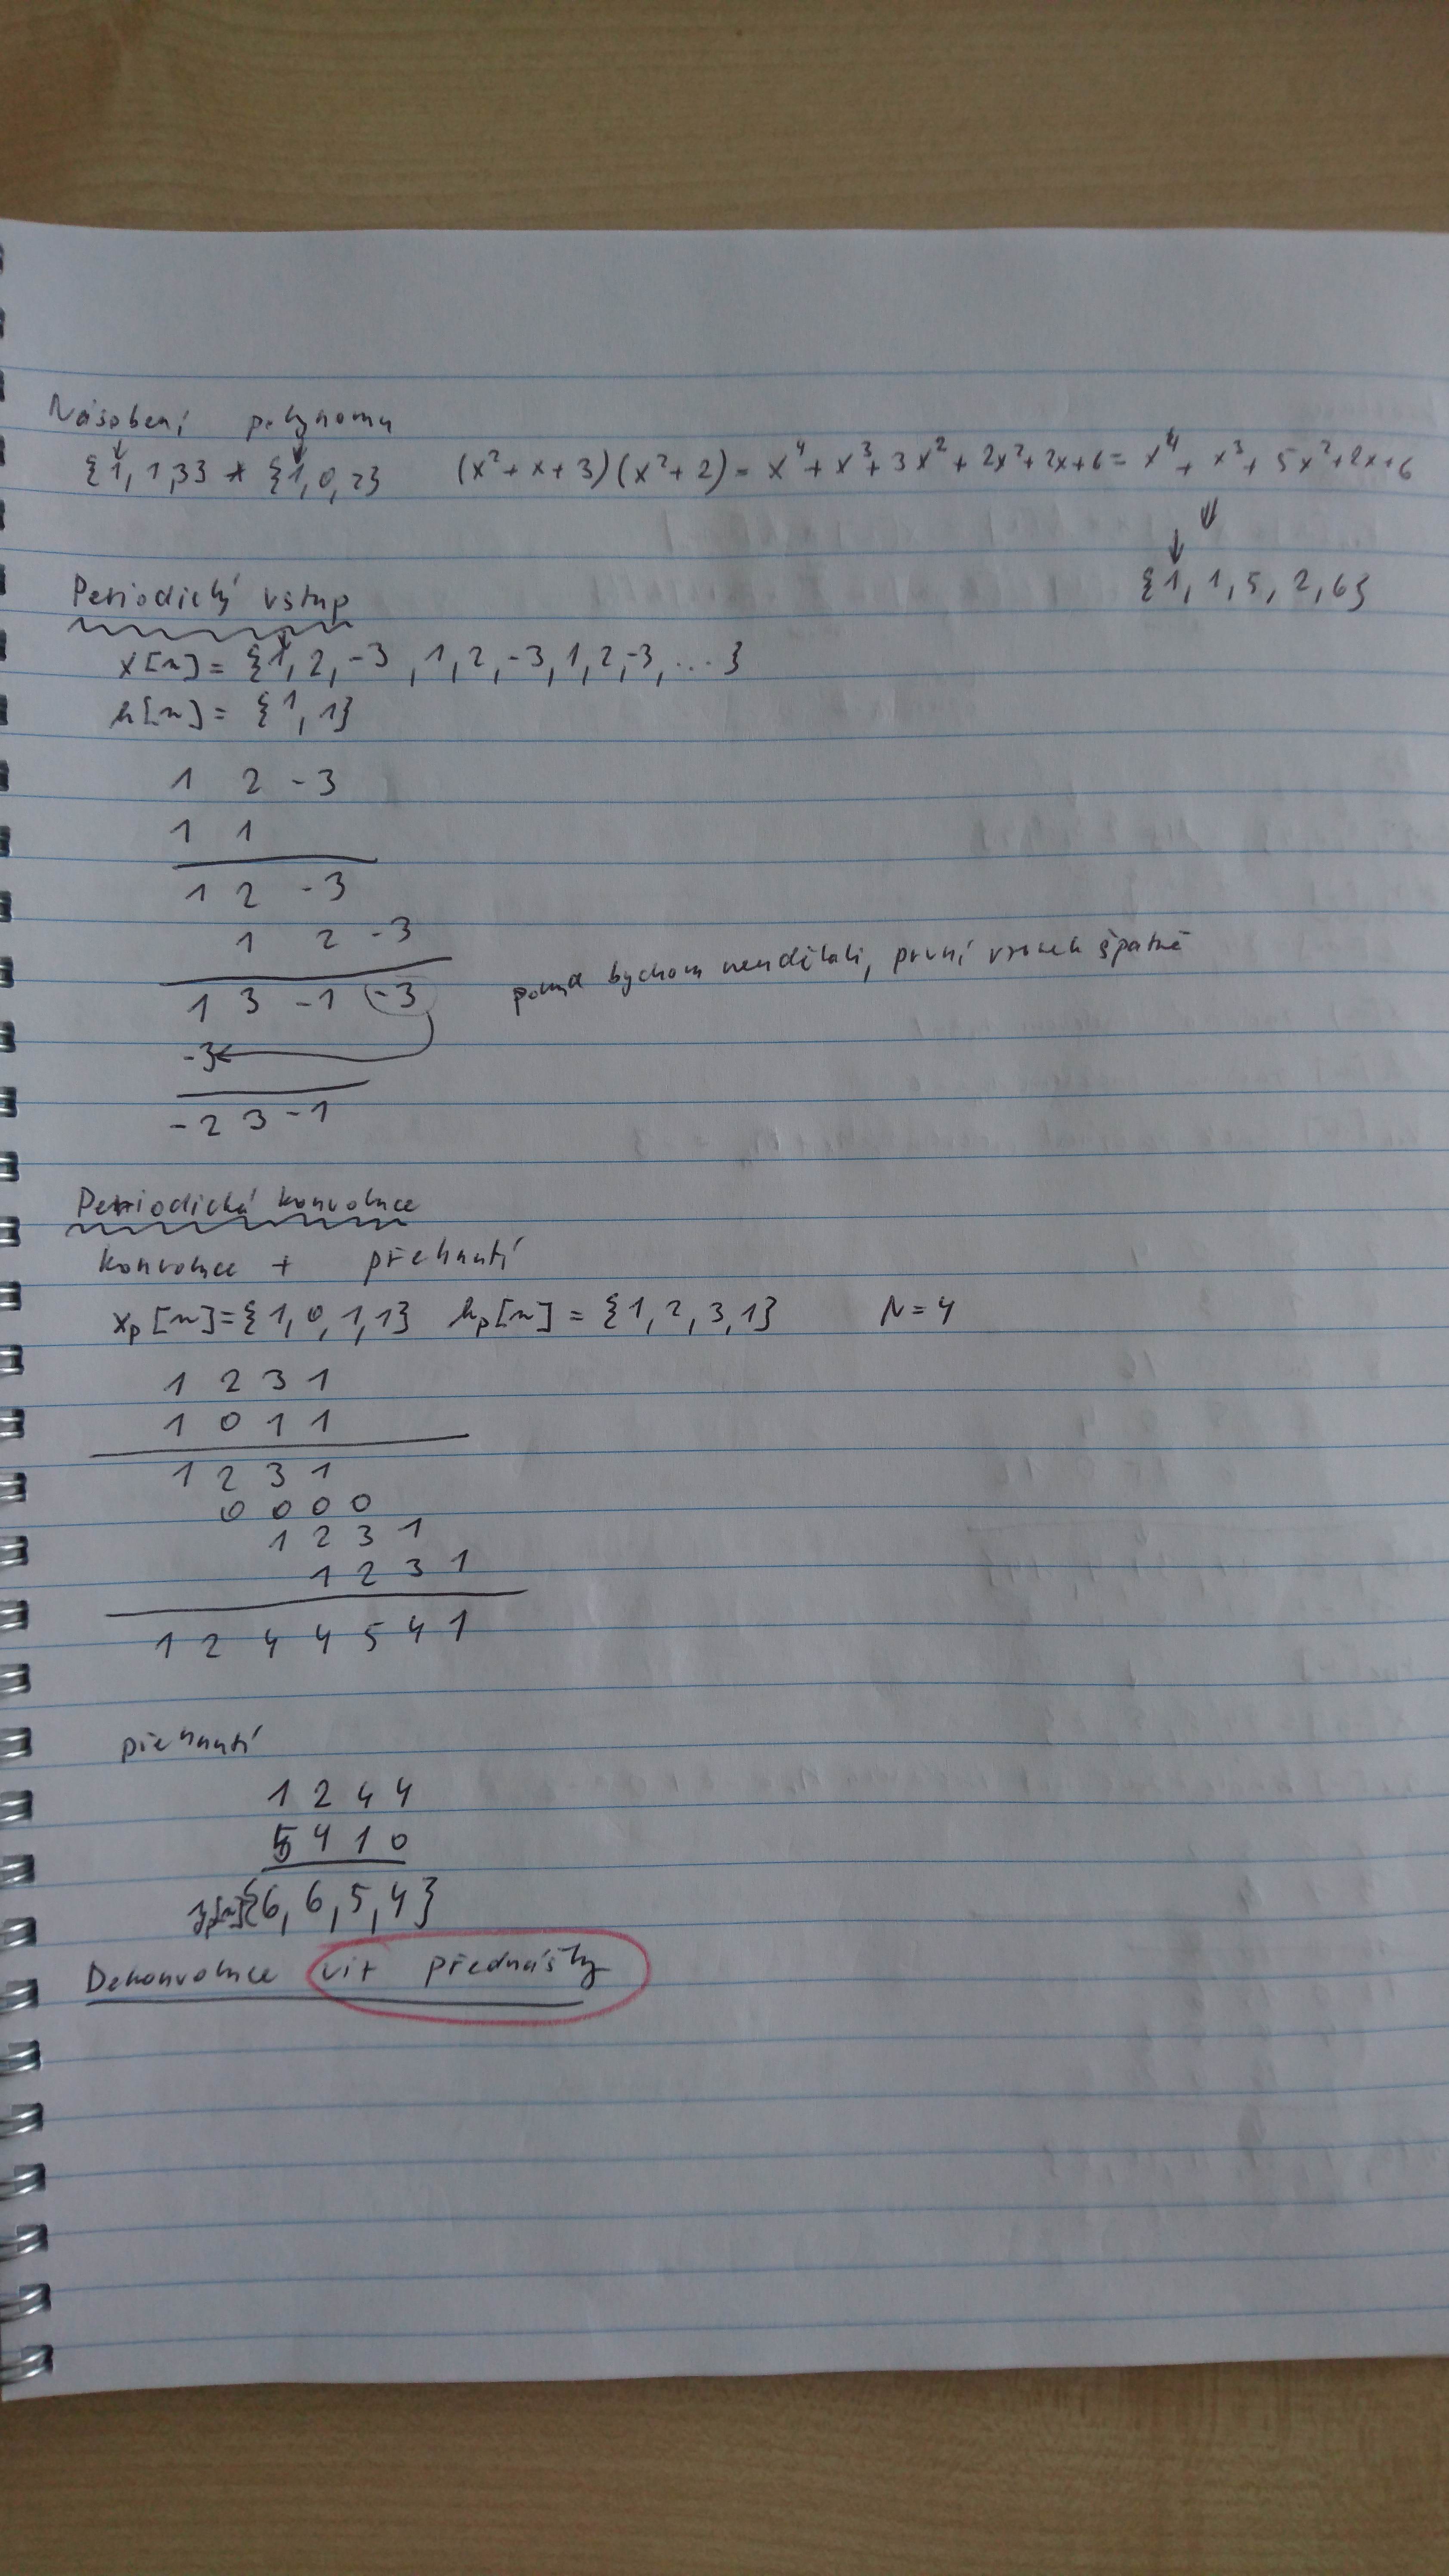 Násobení polynomu
{1, 1, 3} * {1, 0, 2} (x² + x + 3)(x² + 2) = x⁴ + x³ + 3x² + 2x² + 2x + 6 = x⁴ + x³ + 5x² + 2x + 6
⇓
{1, 1, 5, 2, 6}
Periodický vstup
x[n] = {1, 2, -3, 1, 2, -3, 1, 2, -3, ...}
h[n] = {1, 1}
1 2 -3
1 1
1 2 -3
1 2 -3
1 3 -1 -3 bychom neudělali, první vzorek špatně
-3
-2 3 -1
Periodická konvoluce
konvoluce + přehnutí
xp[n] = {1, 0, 1, 1} hp[n] = {1, 2, 3, 1} N = 4
1 2 3 1
1 0 1 1
1 2 3 1
0 0 0 0
1 2 3 1
1 2 3 1
1 2 4 4 5 4 1
přehnutí
1 2 4 4
5 4 1 0
yp[n] {6, 6, 5, 4}
Dekonvoluce viz přednášky